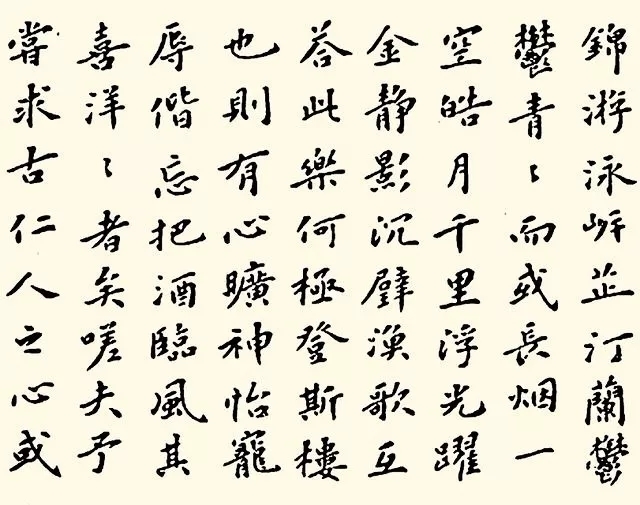 錦游泳岸芷汀蘭鬱
鬱青〻而或長烟一
空皓月千里浮光躍
金静影沉璧漁歌互
荅此樂何極登斯樓
也則有心曠神怡寵
辱偕忘把酒臨風其
喜洋〻者矣嗟夫予
嘗求古仁人之心或